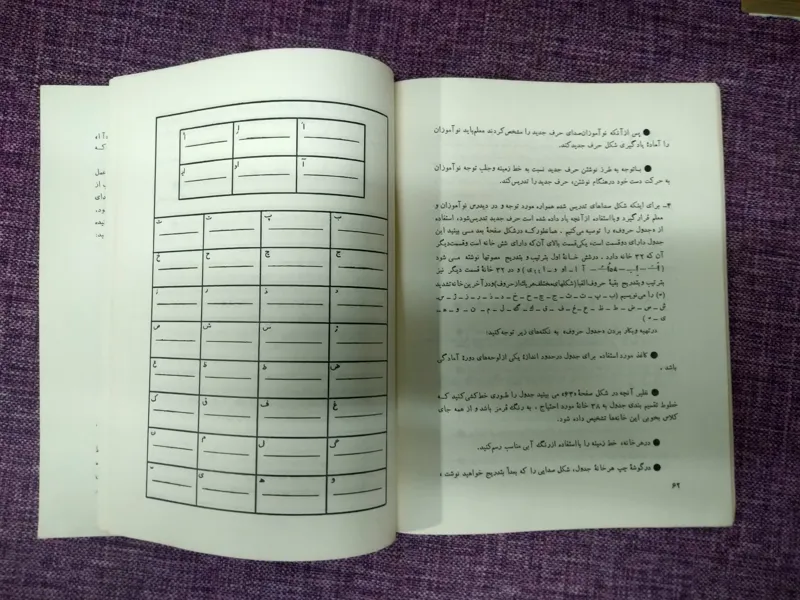 ● پس از آنکه نوآموزان صدای حرف جدید را مشخص کردند معلم باید نوآموزان
را آمادهٔ یادگیری شکل حرف جدید کند.
● باتوجه به طرز نوشتن حرف جدید نسبت به خط زمینه و جلب توجه نوآموزان
به حرکت دست خود در هنگام نوشتن، حرف جدید را تدریس کند.
۴ـ برای اینکه شکل صداهای تدریس شده همواره مورد توجه و در دیدرس نوآموزان و
معلم قرار گیرد و با استفاده از آنچه یاد داده شده است حرف جدید تدریس شود، استفاده
از «جدول حروف» را توصیه می‌کنیم. همانطور که در شکل صفحهٔ بعد می بینید این
جدول دارای دو قسمت است، یکی قسمت بالای آن که دارای شش خانه است و قسمت دیگر
آن که ۳۲ خانه دارد. در شش خانهٔ اول بترتیب و بتدریج مصوتها نوشته می شود
آ ا ـ او و ـ ای ی) و در ۳۲ خانهٔ قسمت دیگر نیز
بترتیب و بتدریج بقیهٔ حروف الفبا (شکلهای مختلف هر یک از حروف) و در آخرین خانه تشدید
را می‌نویسیم (ب ـ پ ـ ت ـ ث ـ ج ـ چ ـ ح ـ خ ـ د ـ ذ ـ ر ـ ز ـ ژ ـ س ـ
ش ـ ص ـ ض ـ ط ـ ظ ـ ع ـ غ ـ ف ـ ق ـ ک ـ گ ـ ل ـ م ـ ن ـ و ـ ه ـ
ی ـ
در تهیه و بکار بردن «جدول حروف» به نکته‌های زیر توجه کنید:
● کاغذ مورد استفاده برای جدول در حدود اندازهٔ یکی از لوحه‌های دورهٔ آمادگی
باشد.
● نظیر آنچه در شکل صفحهٔ «۶۳» می بینید جدول را طوری خط‌کشی کنید که
خطوط تقسیم بندی جدول به ۳۸ خانهٔ مورد احتیاج، به رنگ قرمز باشد و از همه جای
کلاس بخوبی این خانه‌ها تشخیص داده شود.
● در هر خانه، خط زمینه را با استفاده از رنگ آبی مناسب رسم کنید.
● در گوشهٔ چپ هر خانهٔ جدول، شکل صدایی را که بعداً بتدریج خواهید نوشت،
۶۲
ب پ ت ث
ج چ ح خ
د ذ ر ز
ژ س ش ص
ض ط ظ ع
غ ف ق ک
گ ل م ن
و ه ی